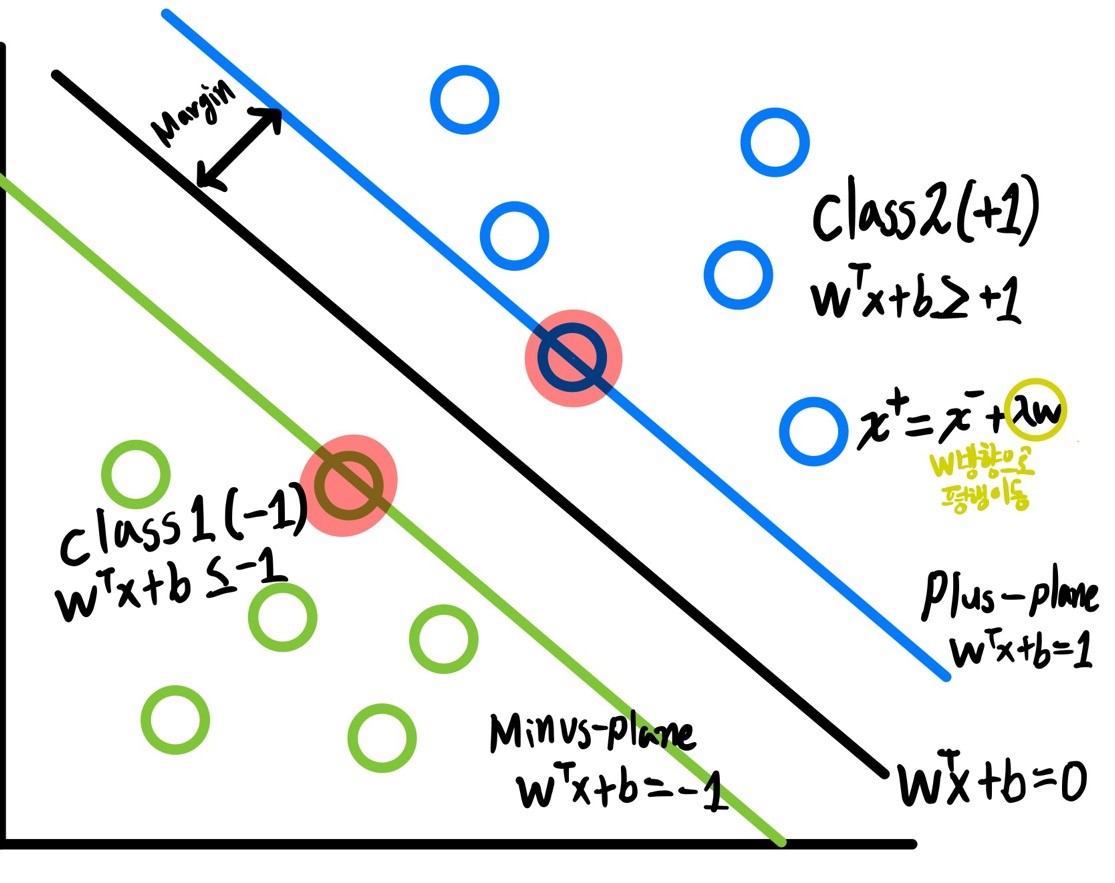 Margin
class2(+1)
wᵀx+b≥+1
x⁺=x⁻+λw
W방향으로
평행이동
class1(-1)
wᵀx+b≤-1
Plus-plane
wᵀx+b=1
Minus-plane
wᵀx+b=-1
wᵀx+b=0